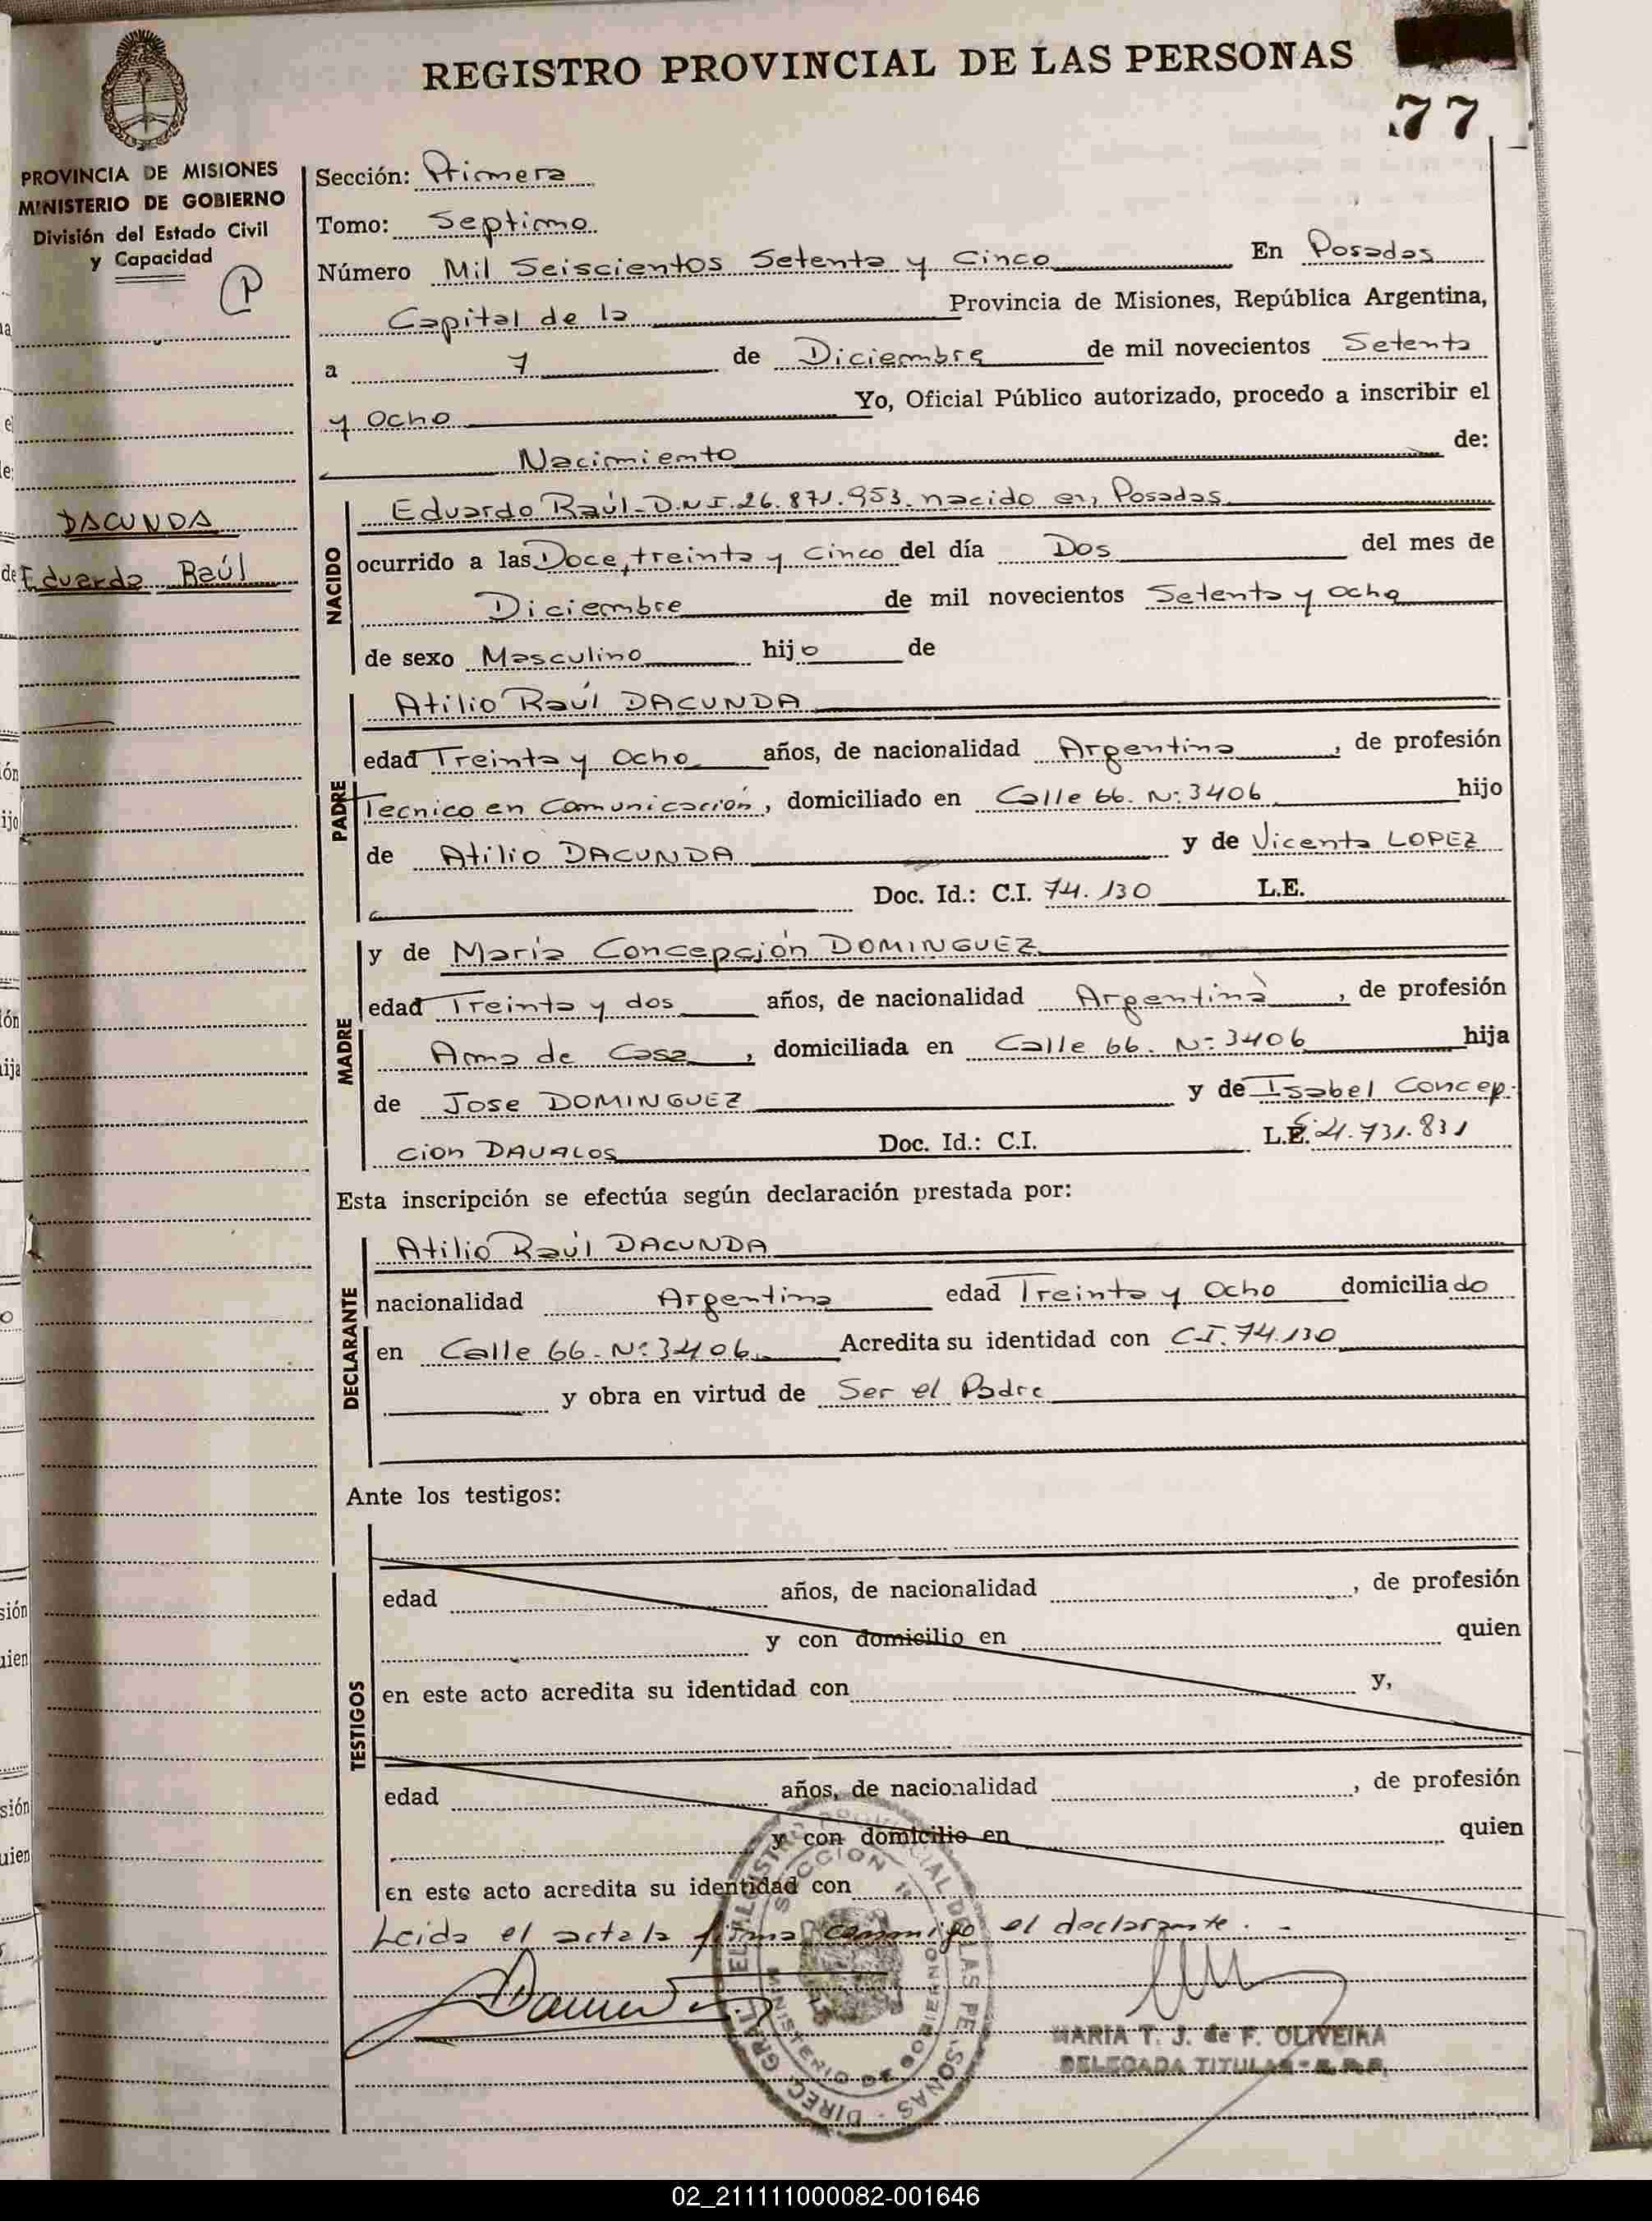 REGISTRO PROVINCIAL DE LAS PERSONAS
77
PROVINCIA DE MISIONES
MINISTERIO DE GOBIERNO
División del Estado Civil
y Capacidad
P
DACUNDA
Eduardo Raúl
Sección: Primera
Tomo: Septimo
Número Mil Seiscientos Setenta y Cinco En Posadas
Capital de la Provincia de Misiones, República Argentina,
a 7 de Diciembre de mil novecientos Setenta
y Ocho Yo, Oficial Público autorizado, procedo a inscribir el
Nacimiento de:
NACIDO
Eduardo Raúl-D.N.I.26.871.953. nacido en, Posadas
ocurrido a las Doce, treinta y Cinco del día Dos del mes de
Diciembre de mil novecientos Setenta y ocho
de sexo Masculino hijo de
PADRE
Atilio Raúl DACUNDA
edad Treinta y Ocho años, de nacionalidad Argentina, de profesión
Tecnico en Comunicación, domiciliado en Calle 66. Nº 3406 hijo
de Atilio DACUNDA y de Vicenta LOPEZ
Doc. Id.: C.I. 74.130 L.E.
MADRE
y de María Concepción DOMINGUEZ
edad Treinta y dos años, de nacionalidad Argentina, de profesión
Ama de Casa, domiciliada en Calle 66. Nº 3406 hija
de Jose DOMINGUEZ y de Isabel Concep
cion DAVALOS Doc. Id.: C.I. L.E. 731.831
Esta inscripción se efectúa según declaración prestada por:
DECLARANTE
Atilio Raúl DACUNDA
nacionalidad Argentina edad Treinta y Ocho domiciliado
en Calle 66 - Nº 3406 Acredita su identidad con C.I. 74.130
y obra en virtud de Ser el Padre
Ante los testigos:
TESTIGOS
edad años, de nacionalidad , de profesión
y con domicilio en quien
en este acto acredita su identidad con y,
edad años, de nacionalidad , de profesión
y con domicilio en quien
en este acto acredita su identidad con
Leida el acta la firma conmigo el declarante. -
MARIA T. J. de F. OLIVEIRA
DELEGADA TITULAR - R.P.P.
02_211111000082-001646